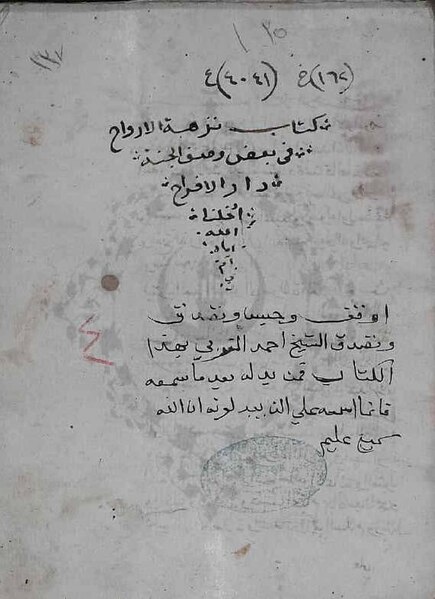 ١٣٥
١٣٧
(١٦٢)خ (٤٠٤١)ع
كتاب نزهة الارواح
في بعض وصف الجنة
دار الافراح
أدخلنا
الله
اياها
اوقف وحبس وتصدق
وتصدق الشيخ احمد بهذا
الكتاب فمن بدله بعد ما سمعه
فانما اسمه علي الذين يبدلونه ان الله
سميع عليم